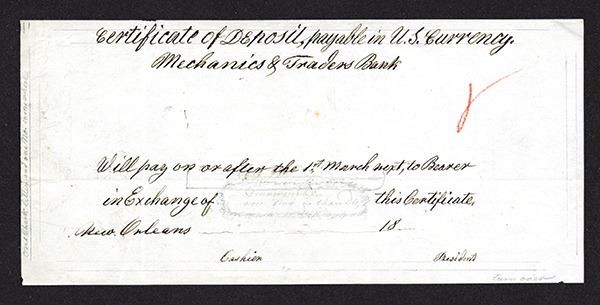 Certificate of Deposit, payable in U.S. Currency.
Mechanics & Traders Bank
Will pay on or after the 1st March next, to Bearer
in Exchange of this Certificate.
New Orleans 18
Cashier President
turn over